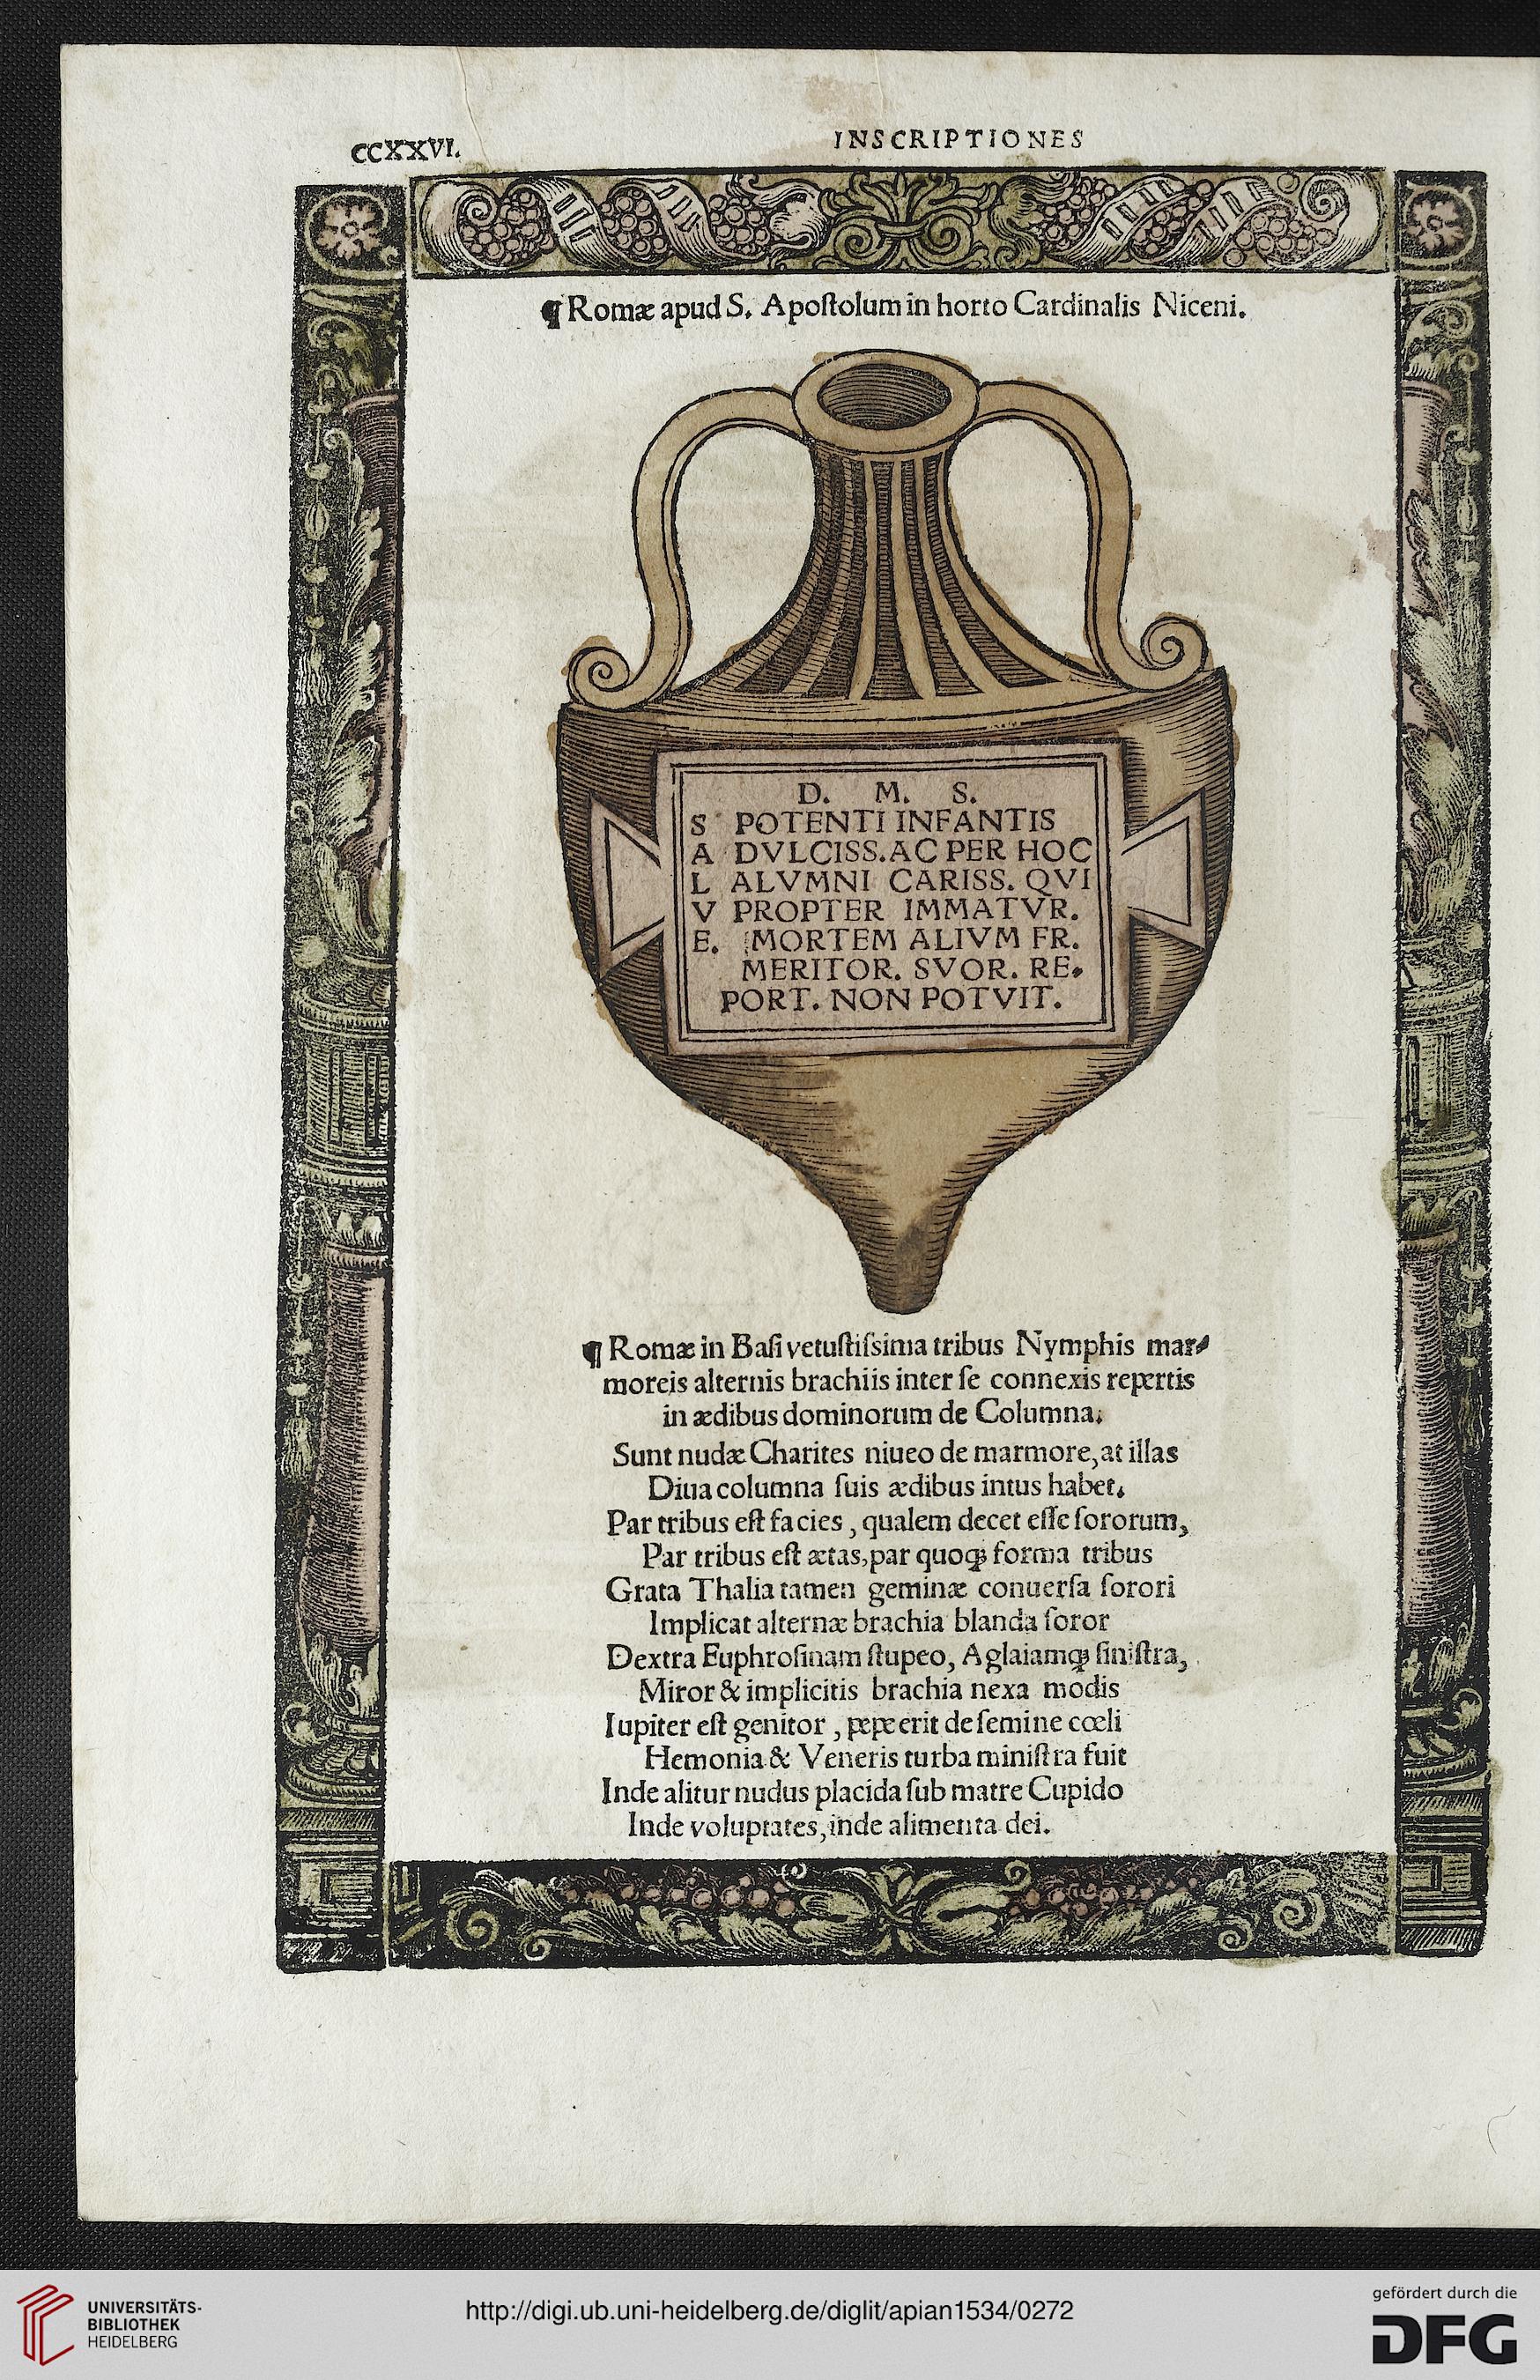 CCXXVI.
INSCRIPTIONES
¶ Romæ apud S. Apoſtolum in horto Cardinalis Niceni.
D. M. S.
S POTENTI INFANTIS
A DVLCISS. AC PER HOC
L ALVMNI CARISS. QVI
V PROPTER IMMATVR.
E. MORTEM ALIVM FR.
MERITOR. SVOR. RE⸗
PORT. NON POTVIT.
¶ Romæ in Baſi vetuſtiſsima tribus Nymphis mar⸗
moreis alternis brachiis inter ſe connexis repertis
in ædibus dominorum de Columna.
Sunt nudæ Charites niueo de marmore, at illas
Diua columna ſuis ædibus intus habet.
Par tribus eſt facies, qualem decet eſſe ſororum,
Par tribus eſt ætas, par quoqꝫ forma tribus
Grata Thalia tamen geminæ conuerſa ſorori
Implicat alternæ brachia blanda ſoror
Dextra Euphroſinam ſtupeo, Aglaiamqꝫ ſiniſtra,
Miror & implicitis brachia nexa modis
Iupiter eſt genitor, peperit de ſemine cœli
Hemonia & Veneris turba miniſtra fuit
Inde alitur nudus placida ſub matre Cupido
Inde voluptates, inde alimenta dei.
UNIVERSITÄTS-
BIBLIOTHEK
HEIDELBERG
http://digi.ub.uni-heidelberg.de/diglit/apian1534/0272
gefördert durch die
DFG